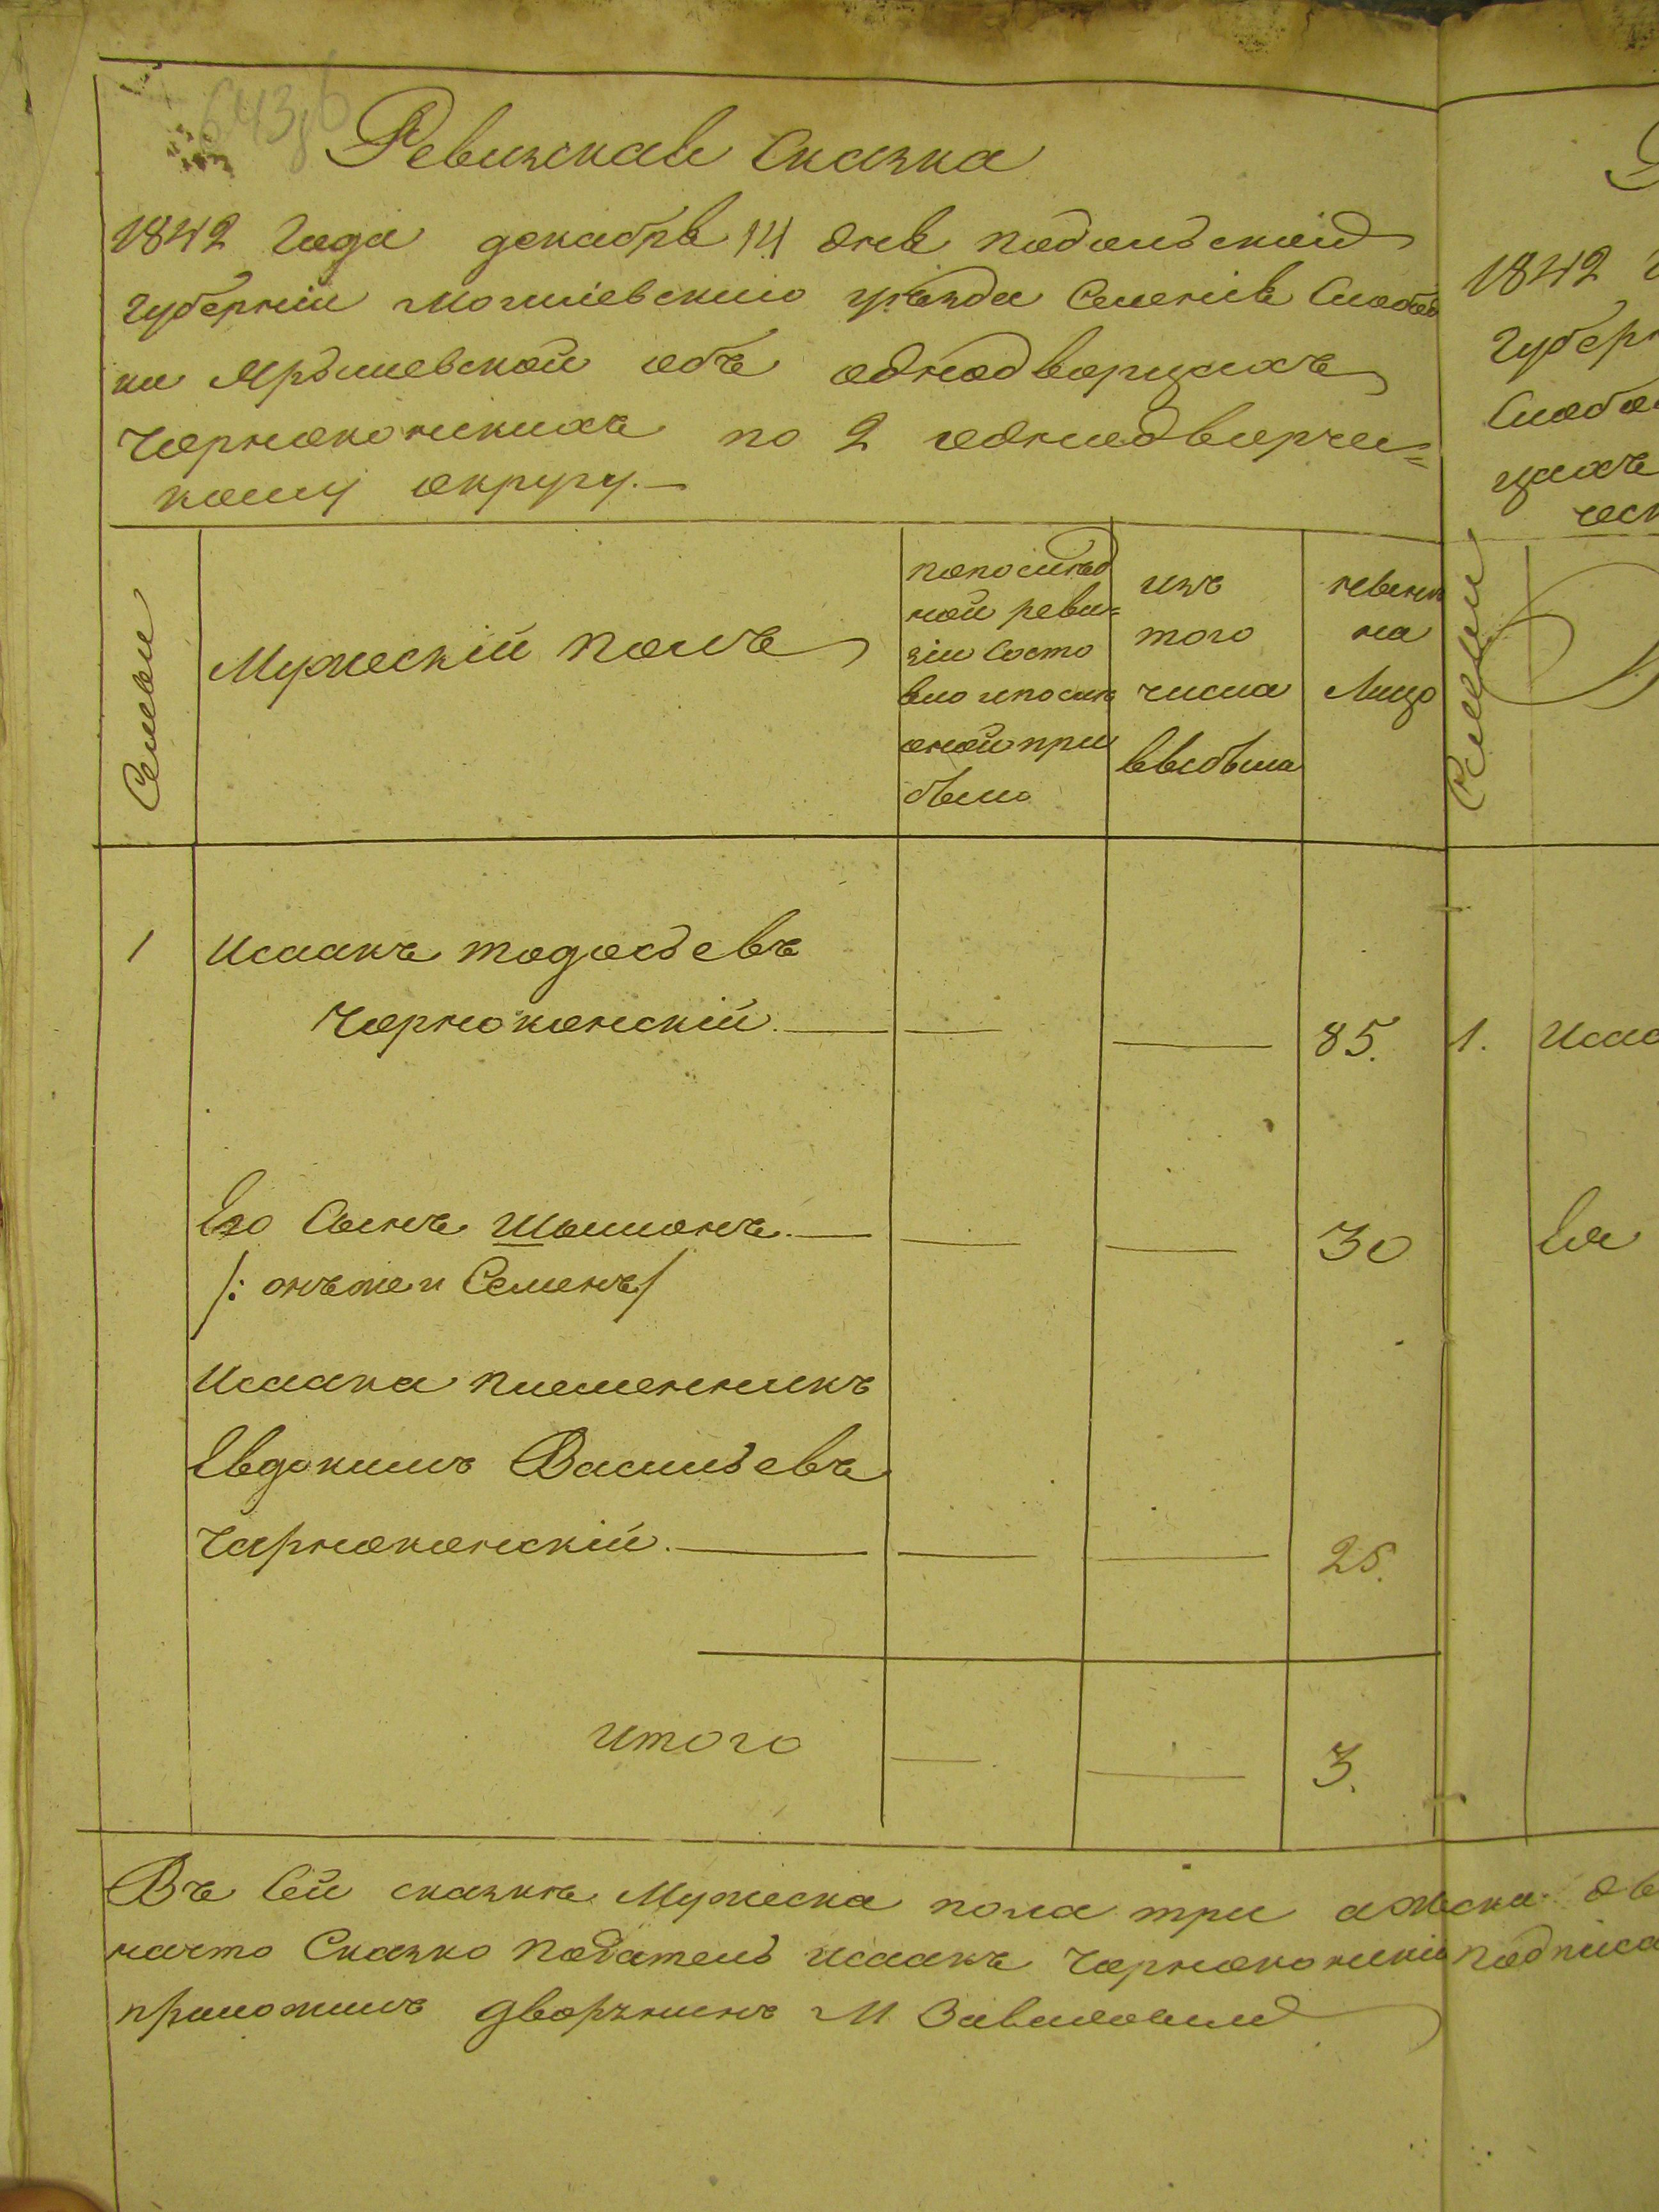 Ревизская Сказка
1842 Года декабря 14 дня Подольской
Губерніи Могилевского уезда Селенія Слобод
ки Ярышевской объ однодворцахъ
Чорноконскихъ по 2 однодворчес=
кому округу.—
Семьи
Мужескій полъ
попослѣд
ней реви=
зіи Состо
яло ипослѣ
оной при
было
изъ
того
числа
выбыло
нынѣ
на
Лицо
1 Исаакъ тодосьевъ
Чорноконскій. — — — 85.
Его Сынъ Шымонъ. — — — 30
/: онъ же и Семенъ/
Исаака племенникъ
Евдокимъ Васильевъ
Чарноконскій. — — — 25.
итого — — 3.
Въ Сей сказкѣ Мужеска пола три а женска
начто Сказко Податель Исаакъ Чорноконскій подписа
приложилъ дворянинъ М
1842
Губер
Слобо
цахъ
Семьи
1. Исаа
Ея